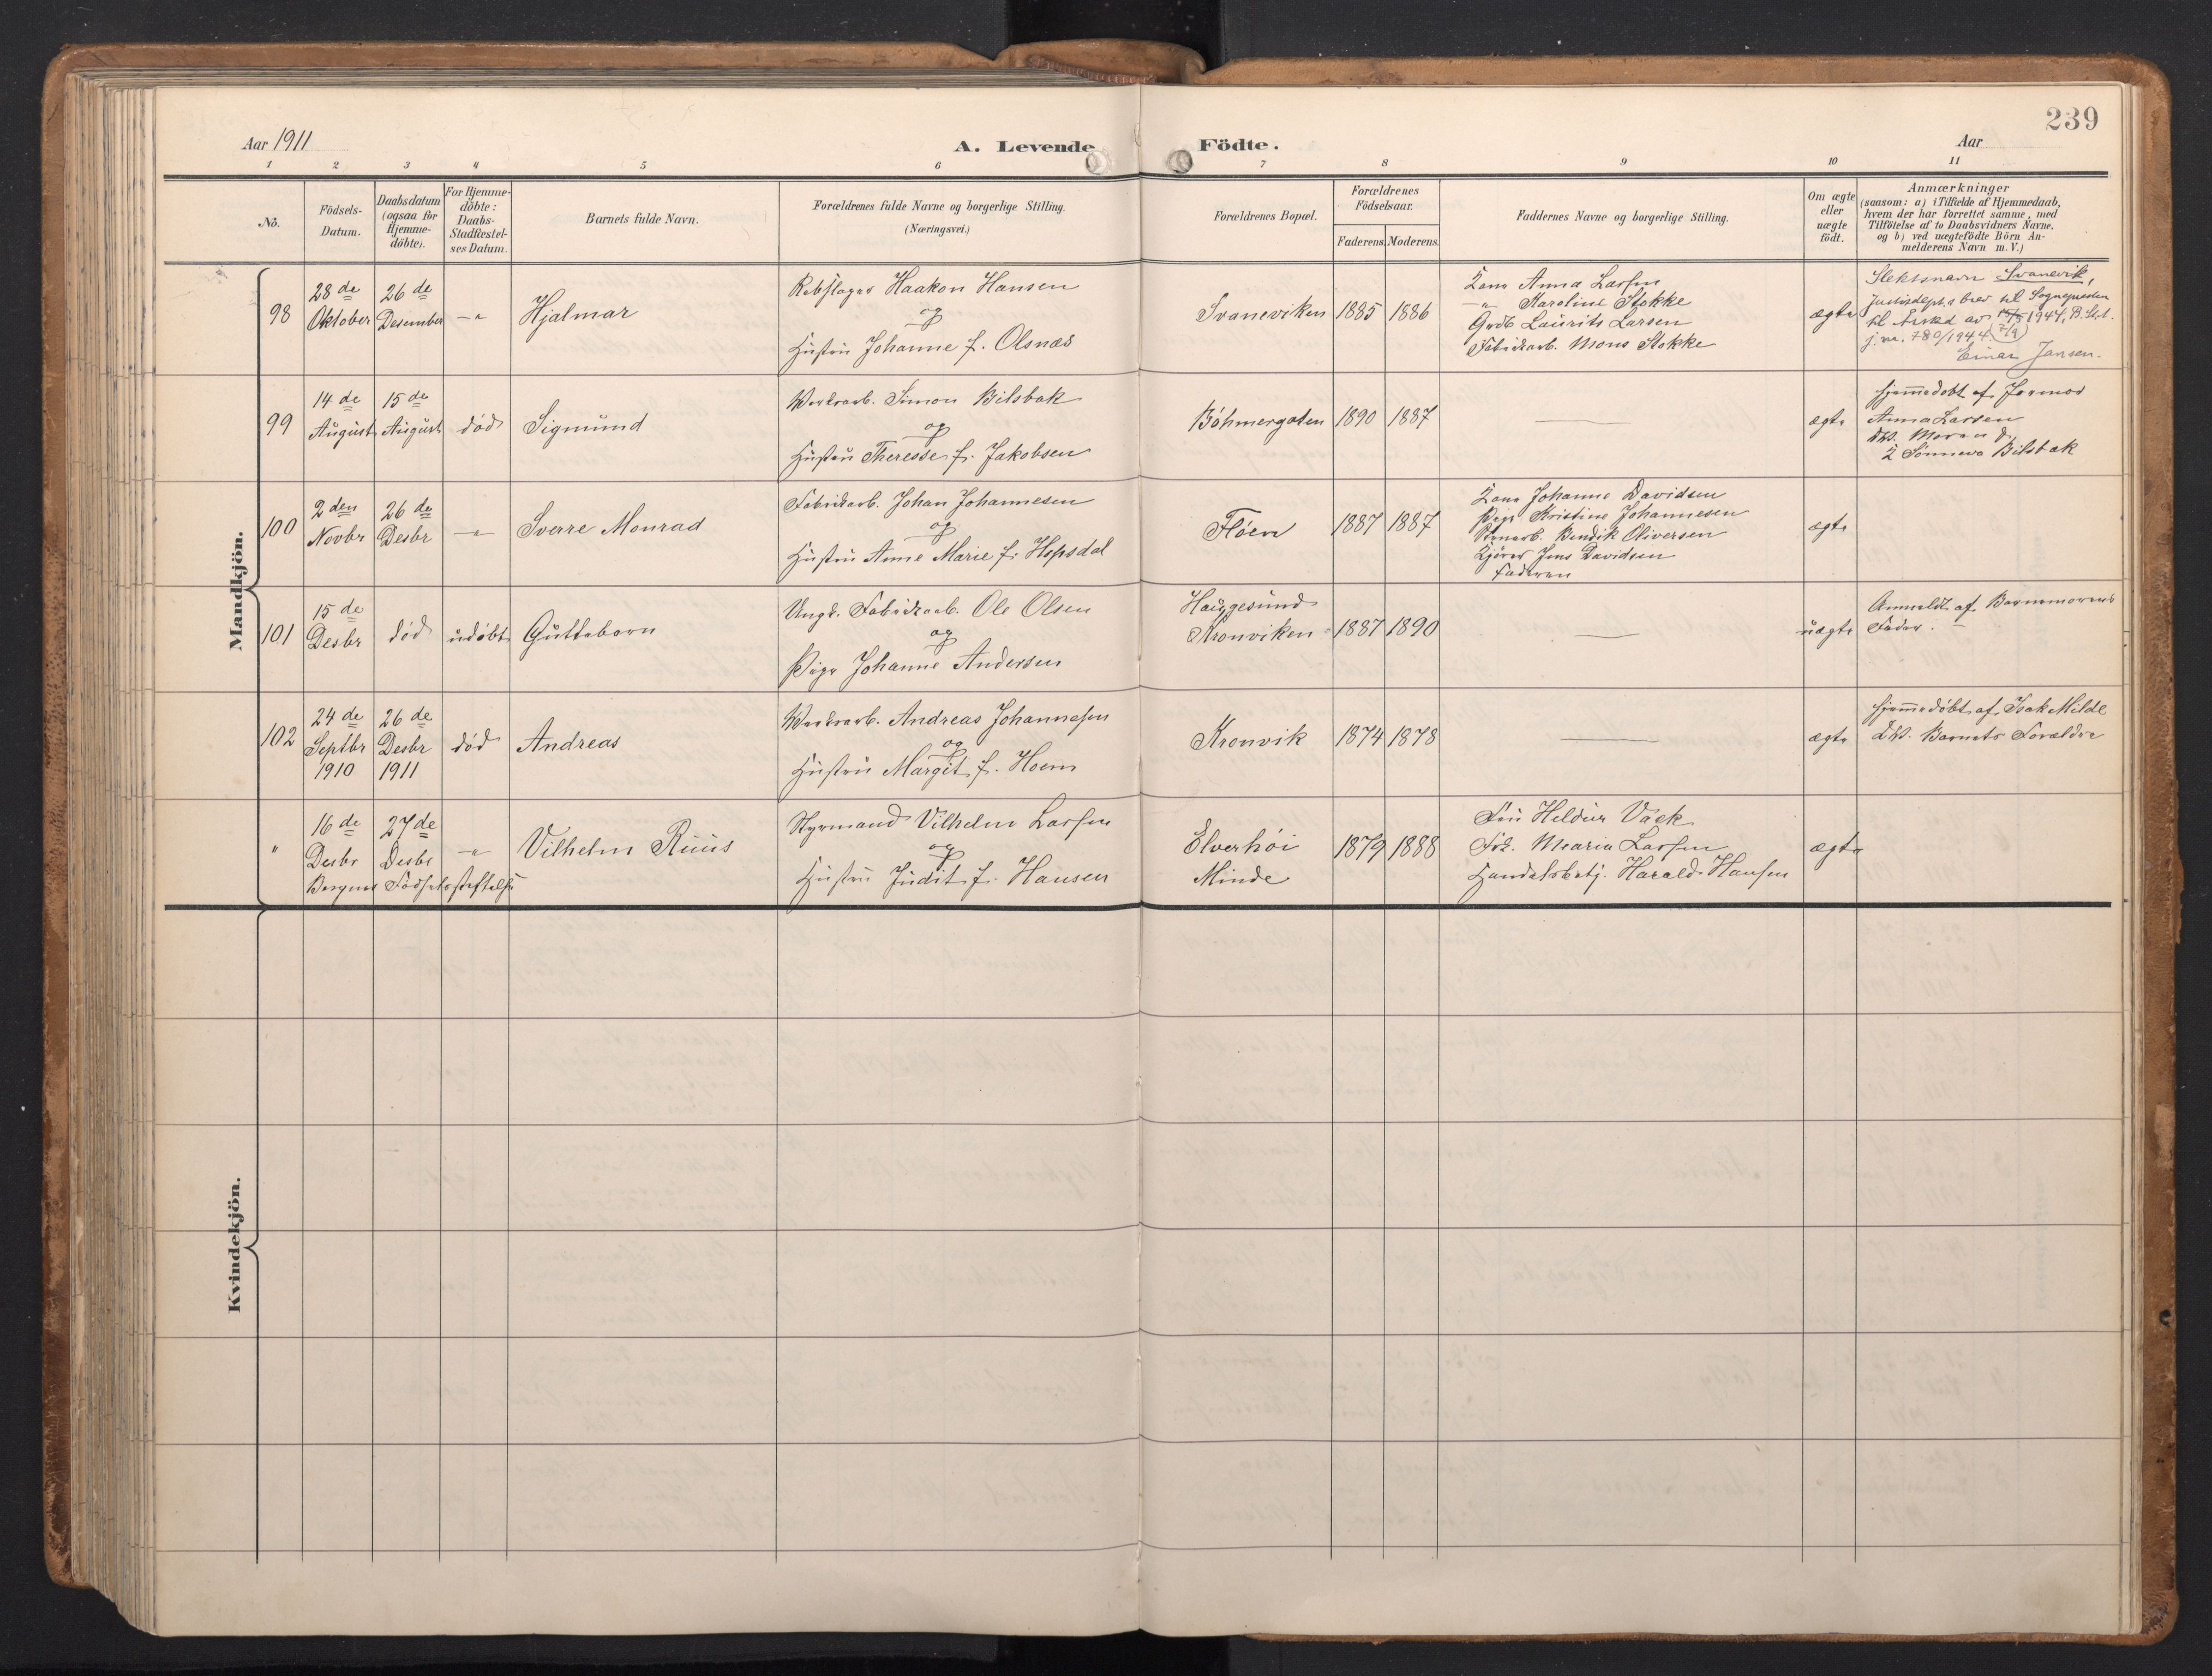 239
Aar 1911
A. Levende Födte.
Aar
1 2 3 4 5 6 7 8 9 10 11
No.
Födsels-
Datum.
Daabsdatum
(ogsaa for
Hjemme-
döbte).
For Hjemme-
döbte:
Daabs-
Stadfæstel-
ses Datum.
Barnets fulde Navn.
Forældrenes fulde Navne og borgerlige Stilling.
(Næringsvei.)
Forældrenes Bopæl.
Forældrenes
Födselsaar.
Faderens. Moderens.
Faddernes Navne og borgerlige Stilling.
Om ægte
eller
uægte
födt.
Anmærkninger
(saasom: a) i Tilfælde af Hjemmedaab,
hvem der har forrettet samme, med
Tilföielse af to Daabsvidners Navne.
og b) ved uægtefödte Börn An-
melderens Navn m. V.)
Mandkjön.
98
28de
Oktober
26de
Desember
-"-
Hjalmar
Rebslager Haakon Hansen
og
Hustru Johanne f. Olsnæs
Svaneviken
1885 1886
Kone Anna Larsen
-"- Karoline Stokke
Grdb. Laurits Larsen
Fabrikarb. Mons Stokke
ægte
Slektsnavn Svanevik,
Justisdept.s brev til Sognepresten
til Årstad av 1944, B. Sept.
j. nr. 780/1944 (7/9)
Einar Jansen.
99
14de
August
15de
August
død
Sigmund
Verksarb. Simon Bilsbak
og
Hustru Therese f. Jakobsen
Böhmergaten
1890 1887
ægte
Hjemmedøbt af Jormor
Anna Larsen
Dv. Moren &
Sönneva Bilsbak
100
2den
Novbr
26de
Desbr
-"-
Sverre Monrad
Fabrikarb. Johan Johannesen
og
Hustru Anne Marie f. Hopsdal
Fløen
1887 1887
Kone Johanne Davidsen
Pige Kristine Johannesen
Bendik Oliversen
Kjører Jens Davidsen
Faderen
ægte
101
15de
Desbr
død
udøbt
Gutteborn
Ungk. Fabrikarb. Ole Olsen
og
Pige Johanne Andersen
Haugesund
Kronviken
1887 1890
uægte
Anmeldt af Barnemorens
Fader.
102
24de
Septbr
1910
26de
Desbr
1911
død
Andreas
Verksarb. Andreas Johannesen
og
Hustru Margit f. Hoem
Kronvik
1874 1878
ægte
Hjemmedøbt af Isak Milde
Dv. Barnets Forældre
"
16de
Desbr
27de
Desbr
-"-
Bergens Födselsstiftelse
Vilhelm Ruus
Styrmand Vilhelm Larsen
og
Hustru Judit f. Hansen
Elverhöi
Minde
1879 1888
Fru Heldur Vack
Frk. Maria Larsen
Handelsbetj. Harald Hansen
ægte
Kvindekjön.